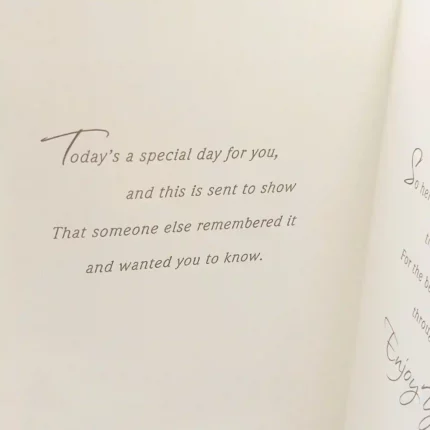 Today's a special day for you,
and this is sent to show
That someone else remembered it
and wanted you to know.
So
For the
Enjoy